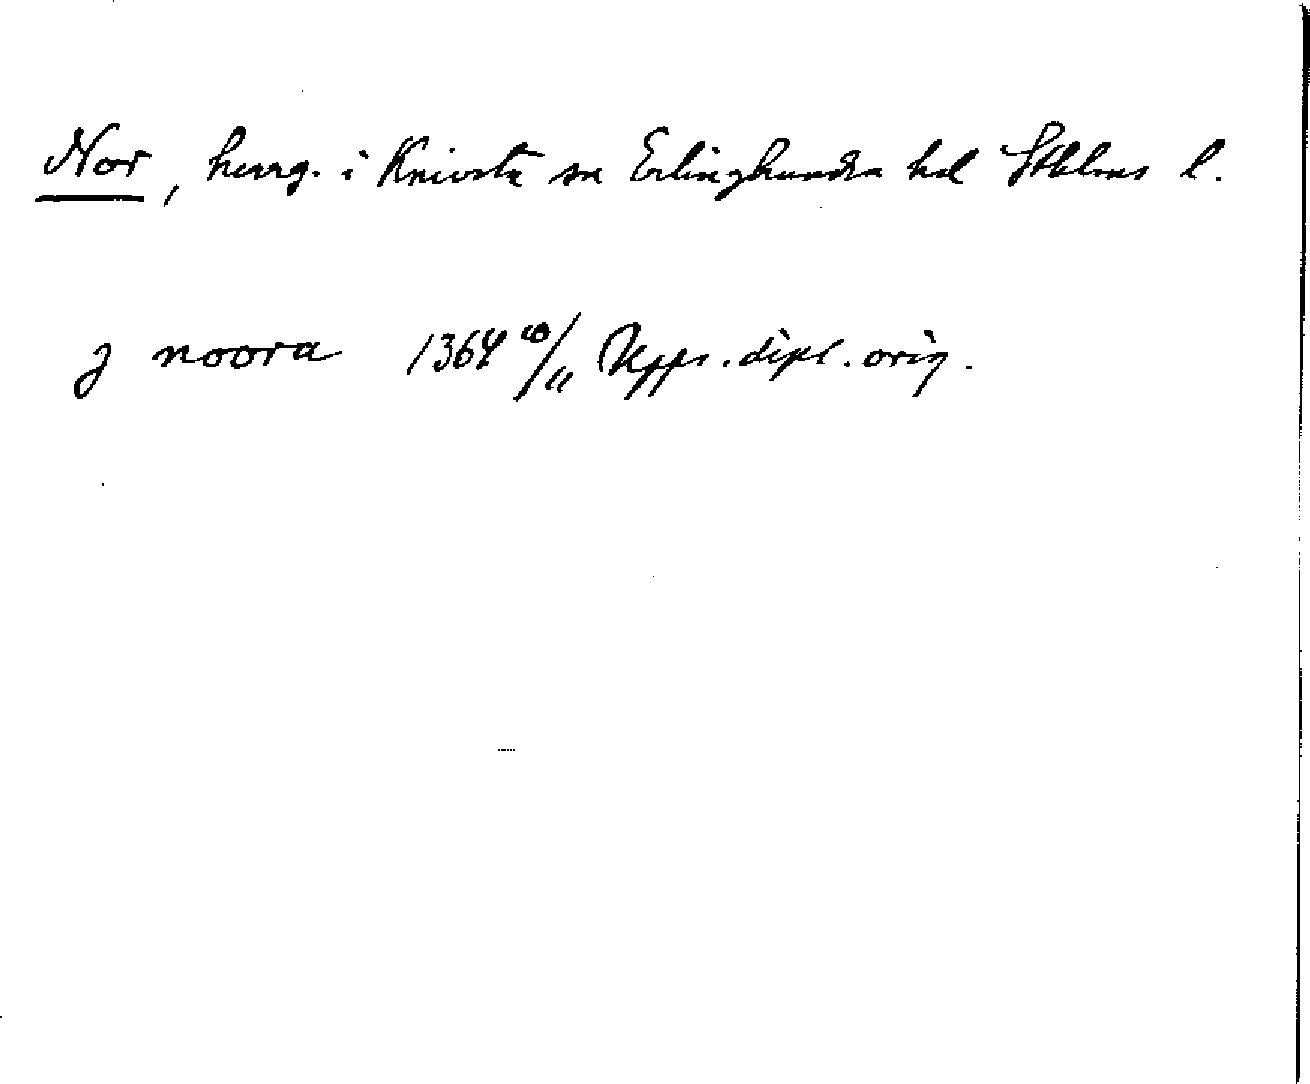 Nor, herrg. i Knivsta sn Erlinghundra hd Sthlms l.
j noora 1364 Upps. dipl. orig.